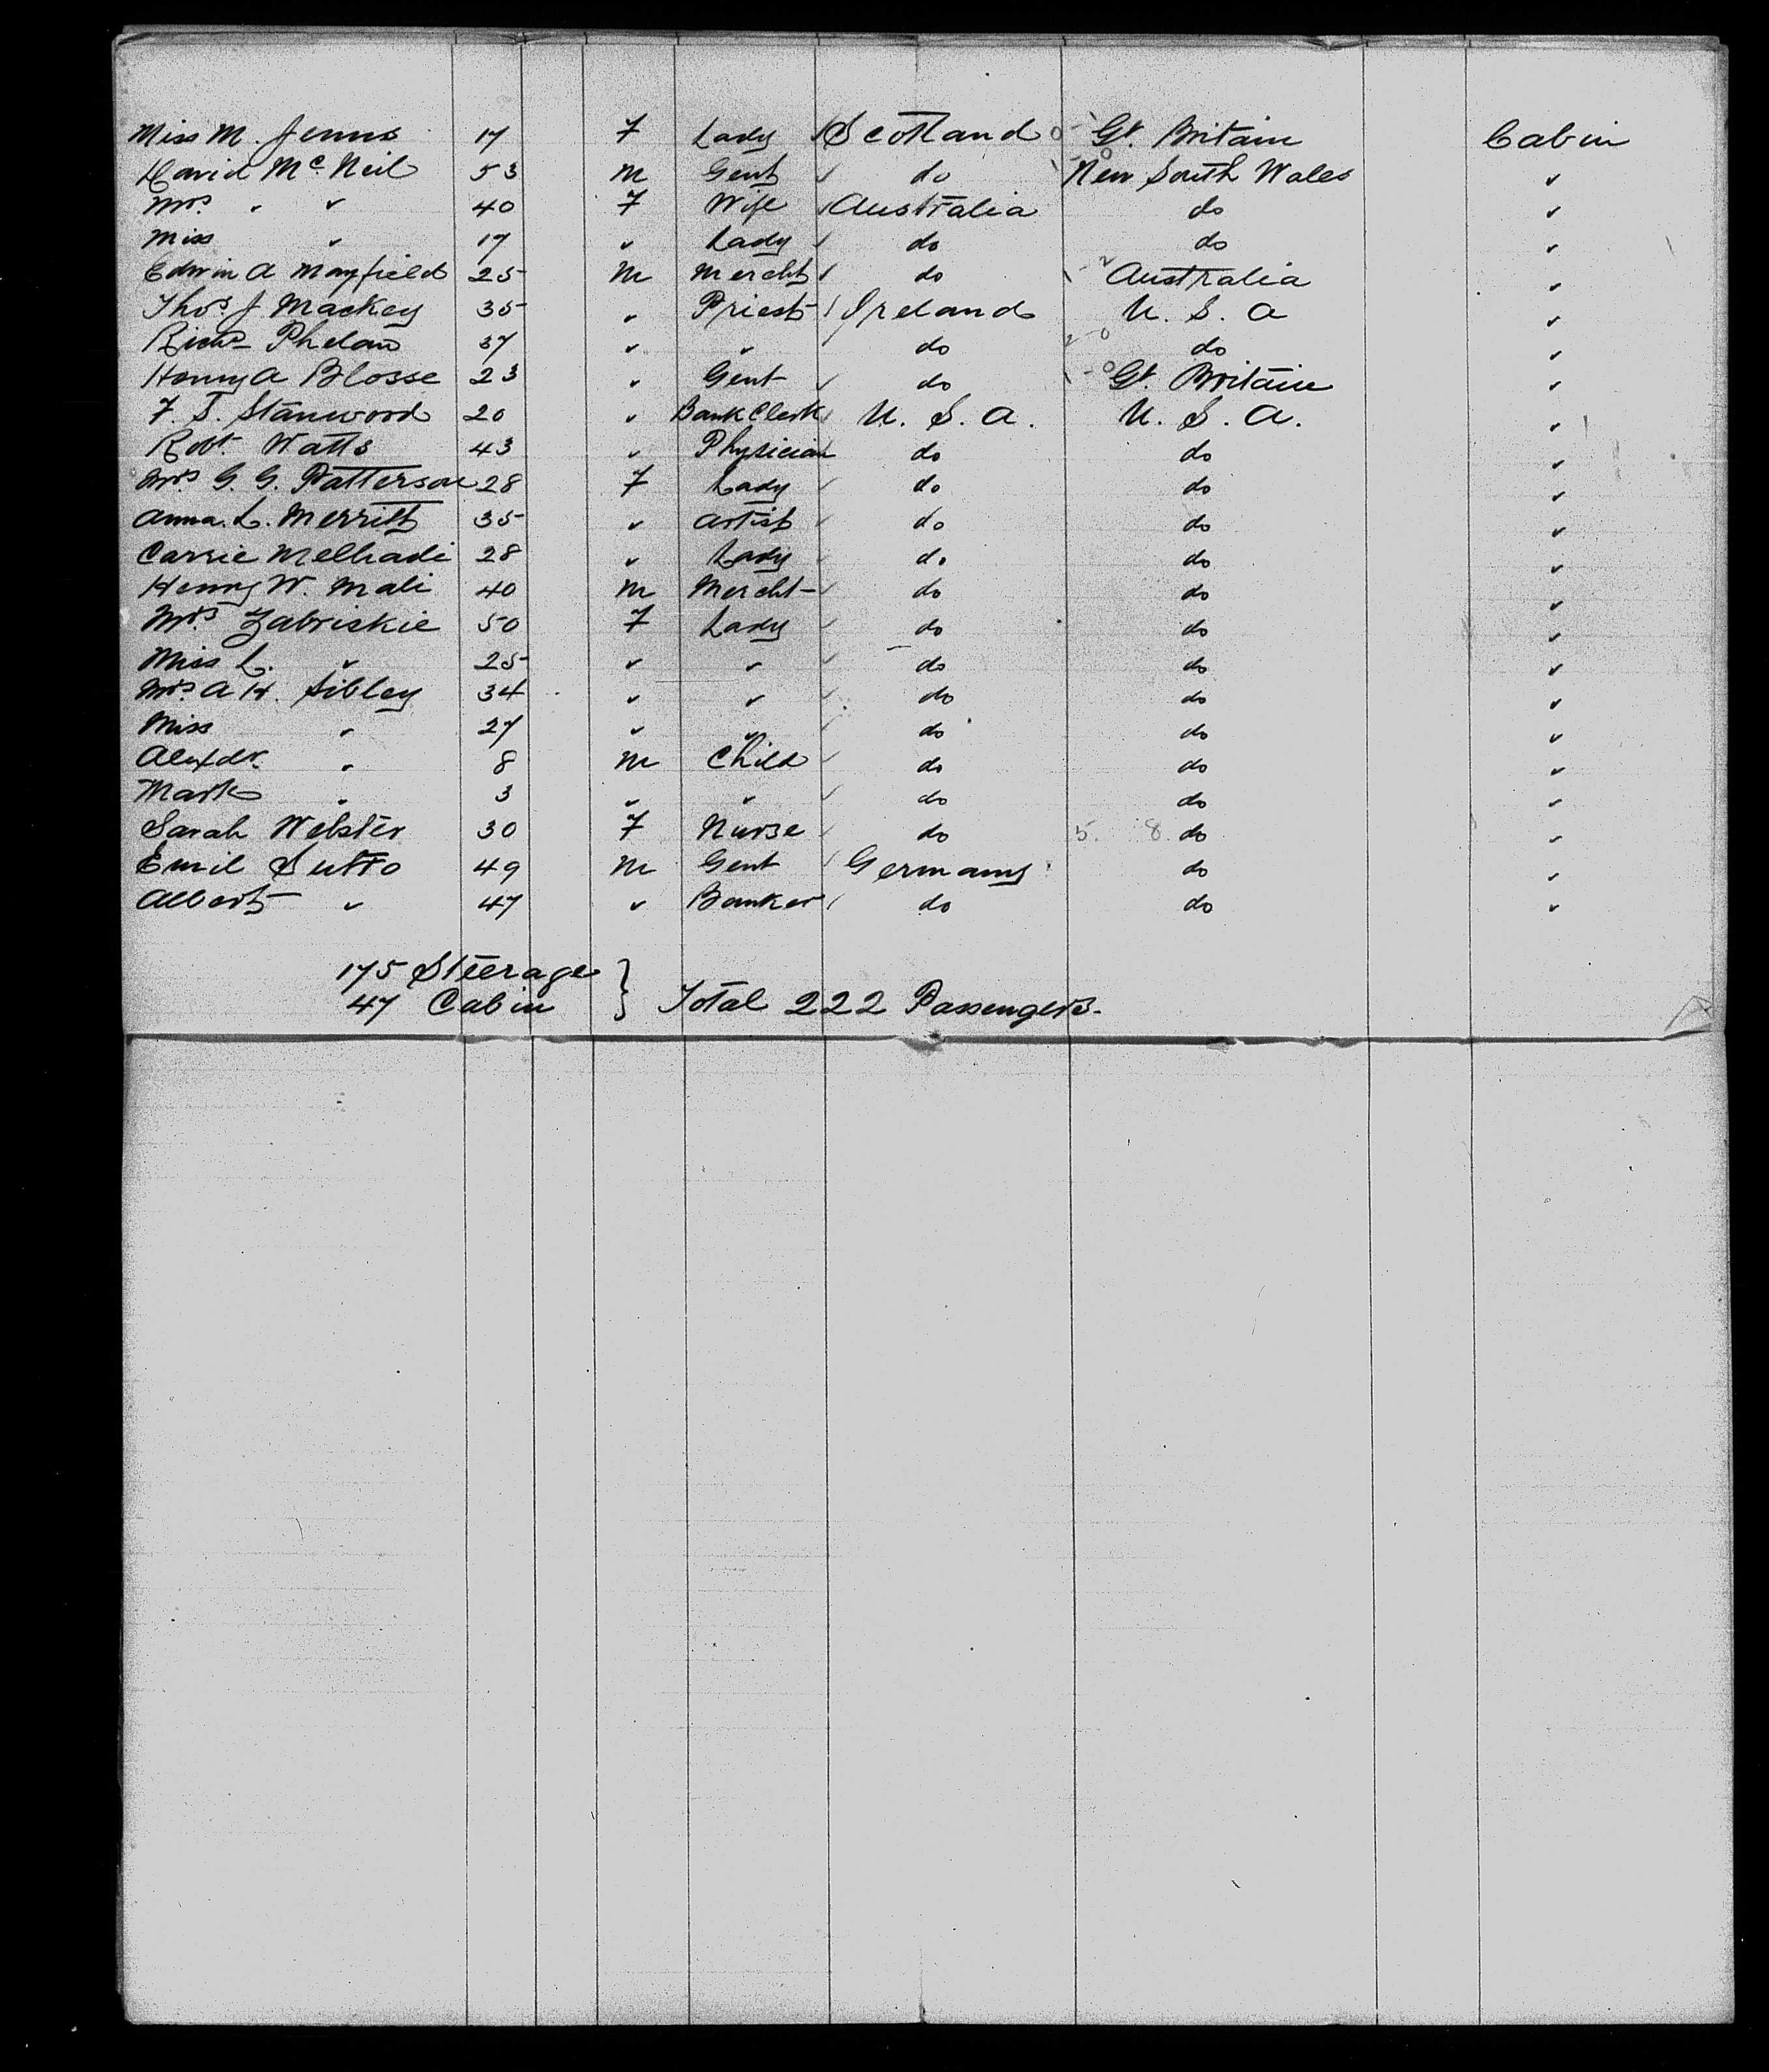 Miss M. Jenns 17 F Lady Scotland Gt. Britain Cabin
David McNeil 53 M Gent do New South Wales "
Mrs " " 40 F Wife Australia do "
Miss " 17 " Lady do do "
Edwin A Mayfield 25 M Mercht do Australia "
Thos J Mackey 35 " Priest Ireland U. S. A "
Richd Phelan 37 " " do do "
Henry A Blosse 23 " Gent do Gt. Britain "
F. S. Stanwood 20 " Bank Clerk U. S. A. U. S. A. "
Robt. Watts 43 " Physician do do "
Mrs G. G. Patterson 28 F Lady do do "
Anna. L. Merritt 35 " Artist do do "
Carrie Melhadi 28 " Lady do do "
Henry W. Mali 40 M Mercht do do "
Mrs Zabriskie 50 F Lady do do "
Miss L. " 25 " " do do "
Mrs A H. Sibley 34 " " do do "
Miss " 27 " " do do "
Alexdr. " 8 M Child do do "
Mark " 3 " " do do "
Sarah Webster 30 F Nurse do 5. 8 do "
Emil Sutro 49 M Gent Germany do "
Albert " 47 " Banker do do "
175 Steerage
47 Cabin } Total 222 Passengers.